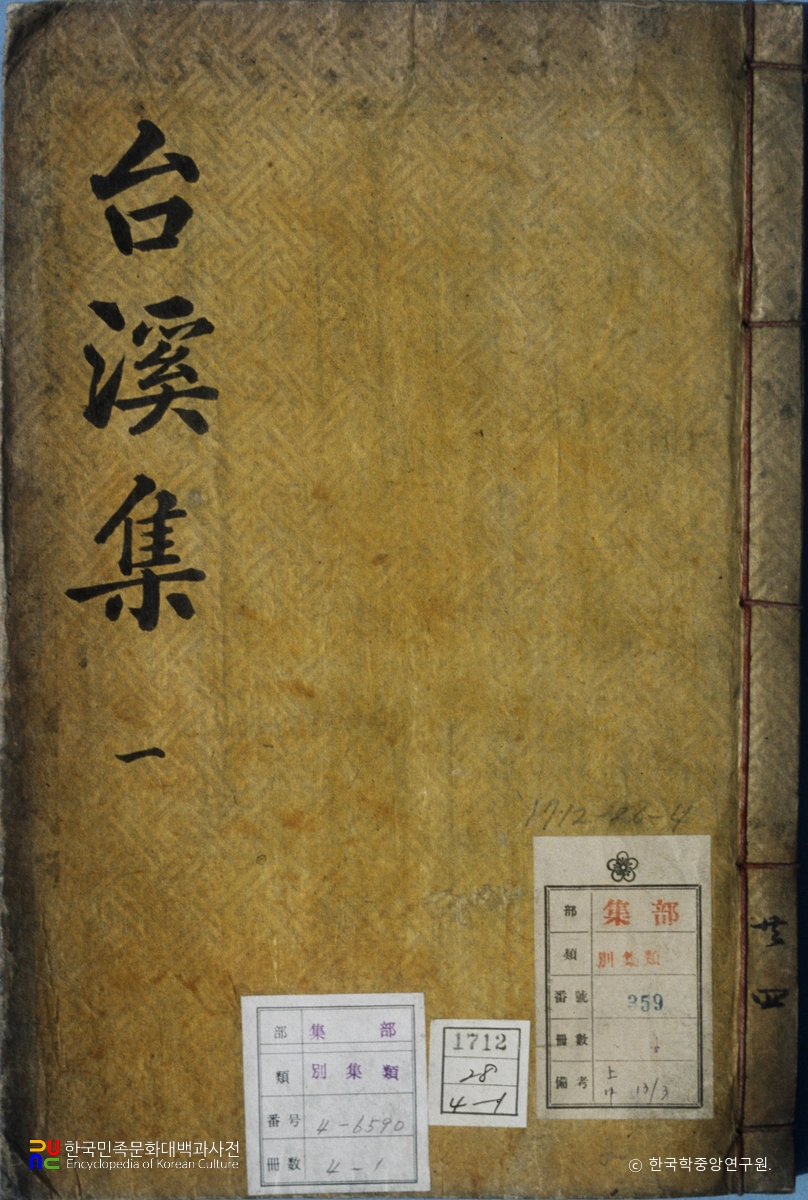 台溪集 一
1712-28-4
部 集部
類 別集類
番號 359
冊數
備考 13/3
共四
部 集部
類 別集類
番号 4-6590
冊數 4-1
1712
28
4-1
한국민족문화대백과사전
Encyclopedia of Korean Culture
© 한국학중앙연구원.